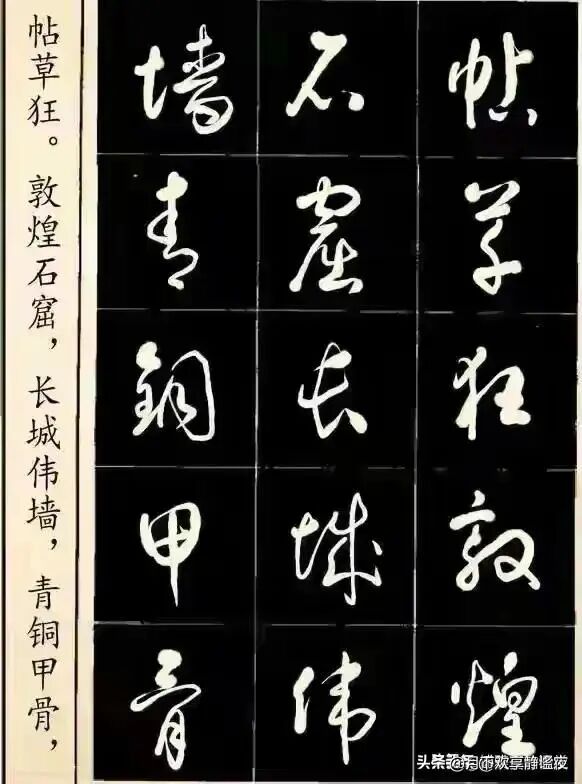 帖草狂敦煌
石窟长城伟
墙青铜甲骨
帖草狂。敦煌石窟，长城伟墙，青铜甲骨，
头条